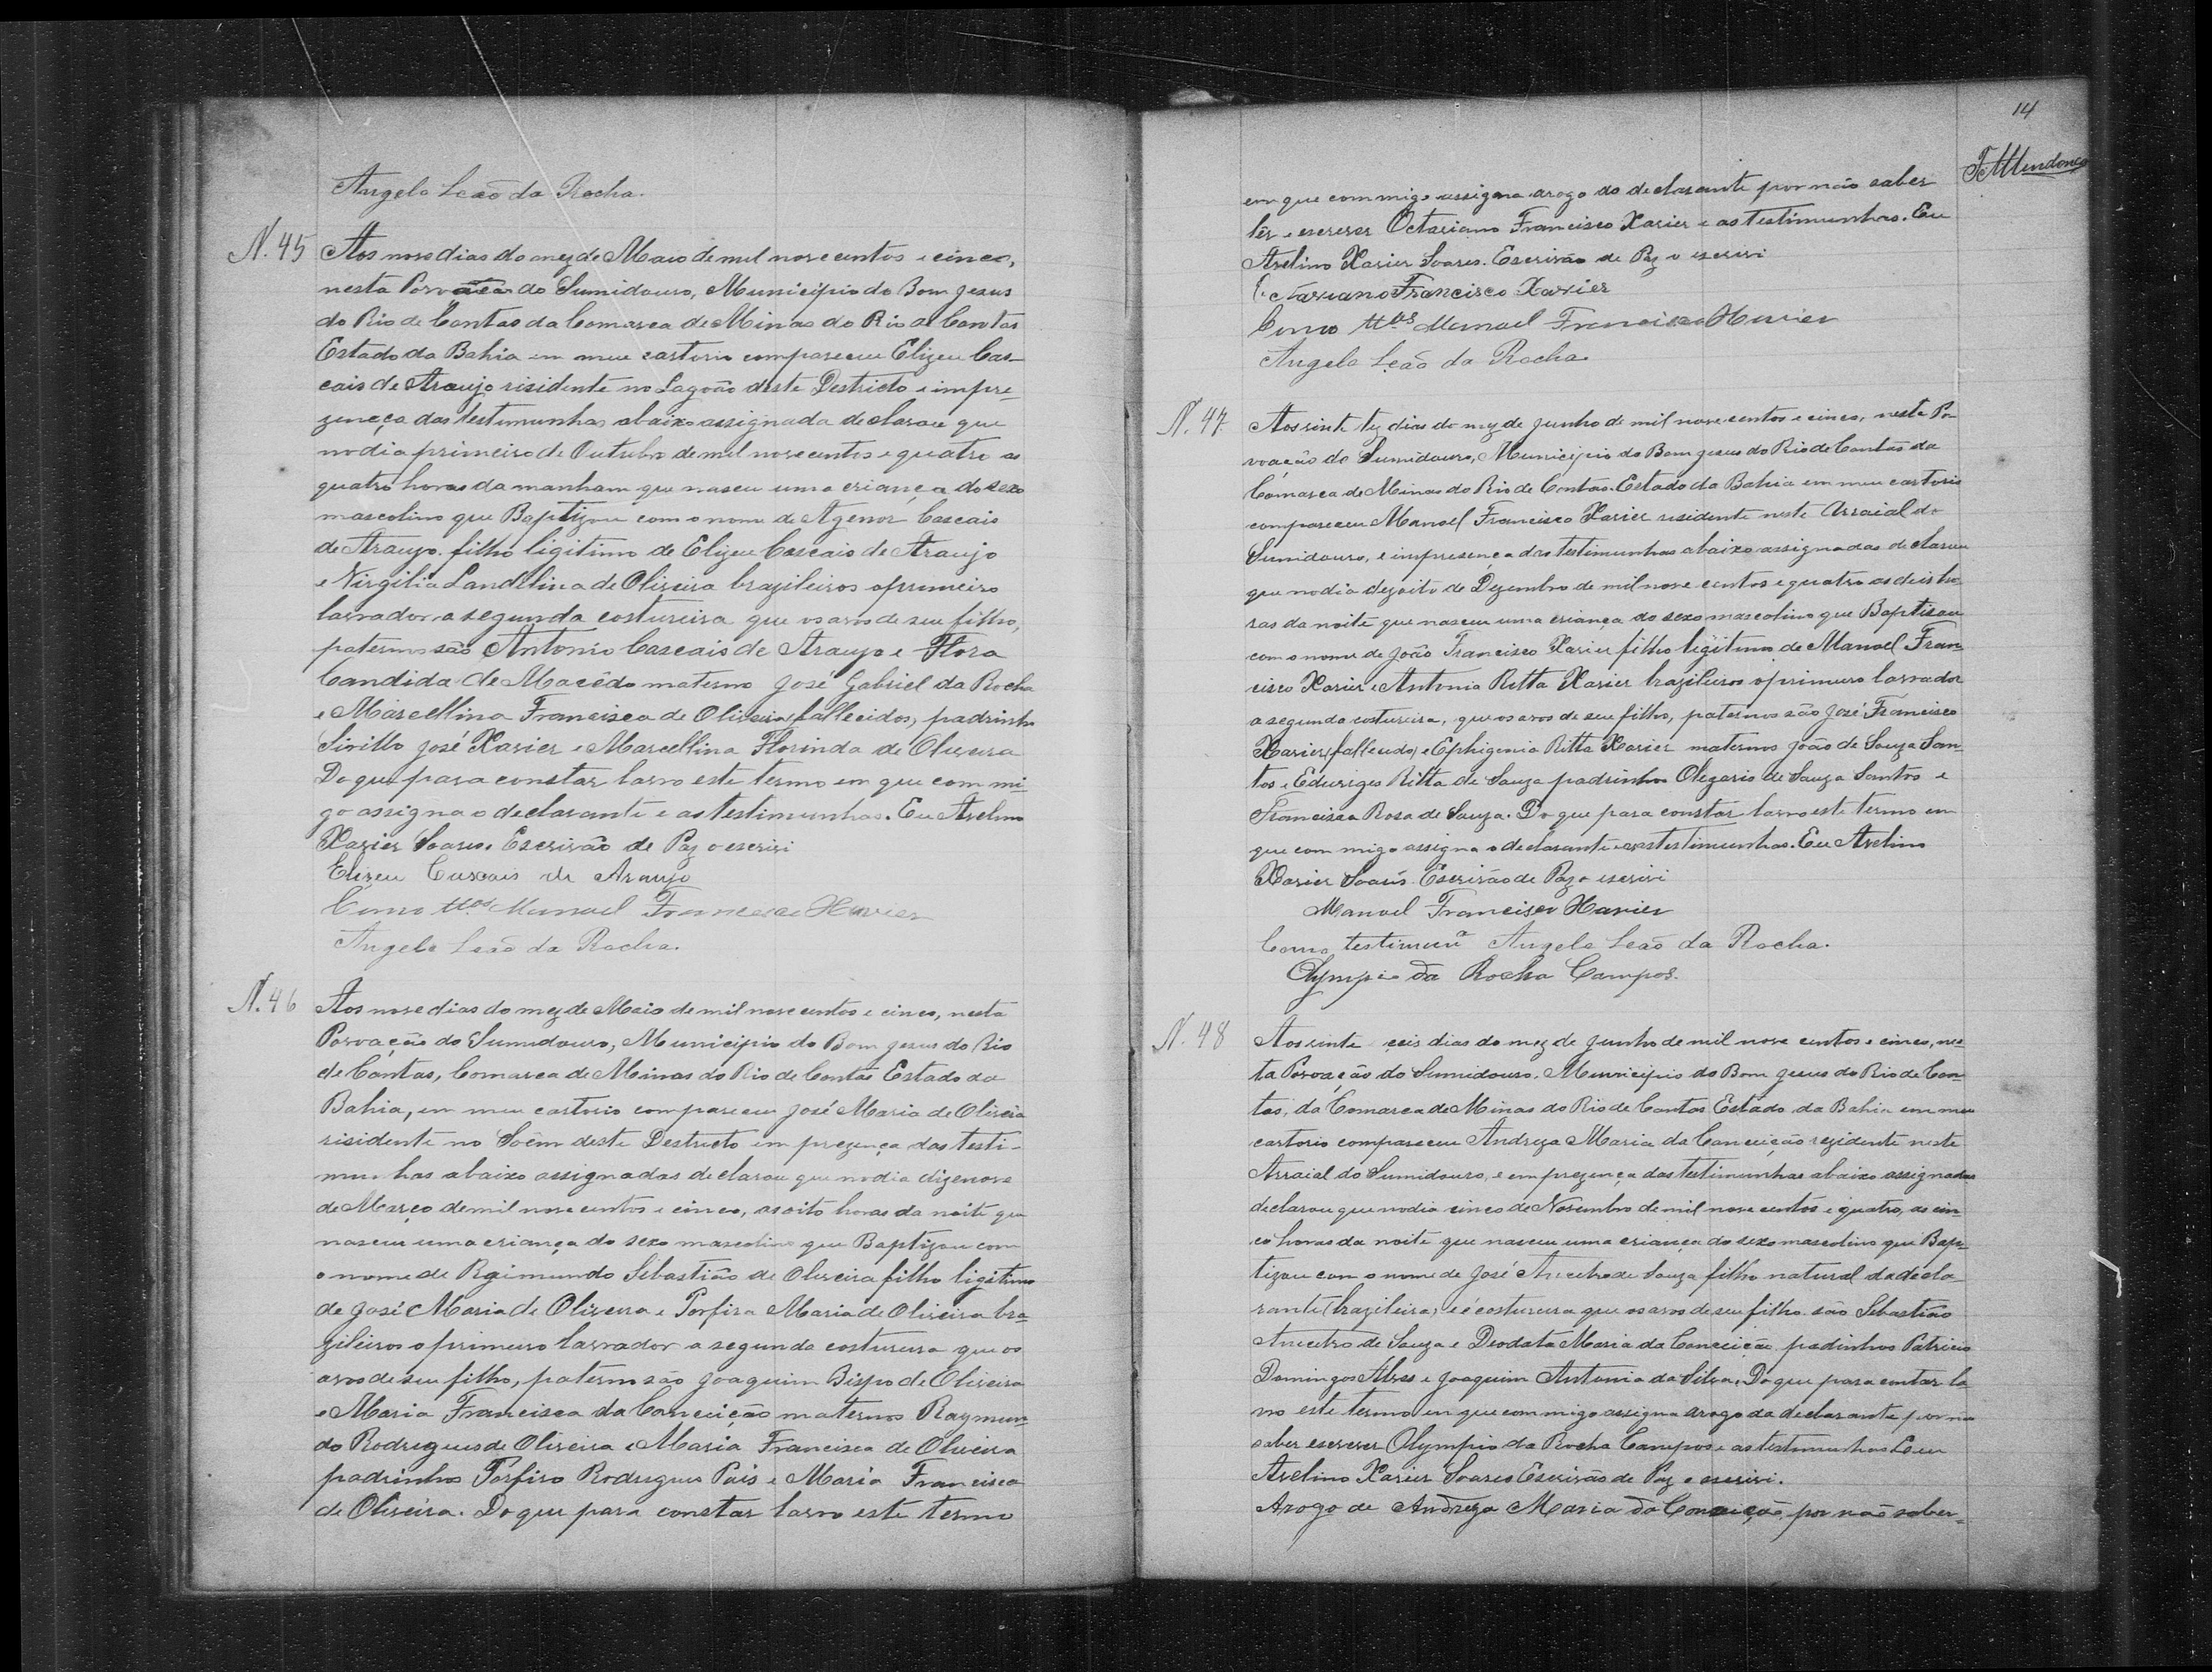 Angelo Leão da Rocha.
N. 45 Aos nove dias do mez de Maio de mil nove centos e cinco,
nesta Povoação do Sumidouro, Municipio do Bom Jesus
do Rio de Contas da Comarca de Minas do Rio de Contas
Estado da Bahia em meu cartorio compareceu Elizeu Cas-
cais de Araujo risidente no Lagoão deste Destricto e impre-
zença das testimunhas abaixo assignada declarou que
no dia primeiro de Outubro de mil nove centos e quatro as
quatro horas da manham que nasceu uma criança do sexo
mascolino que Baptizou com o nome de Agenor Cascais
de Araujo filho ligitimo de Elizeu Cascais de Araujo
e Virgilia Landelina de Oliveira brazileiros o primeiro
lavrador a segunda costureira que os avos de seu filho,
paternos são Antonio Cascais de Araujo e Flora
Candida de Macêdo materno José Gabriel da Rocha
e Marcellina Francisca de Oliveira (fallecidos) padrinho
Sirillo José Xavier e Marcellina Florinda de Oliveira
Do que para constar lavro este termo em que com mi-
go assigna o declarante e as testimunhas. Eu Avelino
Xavier Soares. Escrivão de Paz o escrivi
Elizeu Cascais de Araujo
Como ttas Manoel Francisco Xavier
Angelo Leão da Rocha.
N. 46 Aos nove dias do mez de Maio de mil nove centos e cinco, nesta
Povoação do Sumidouro, Municipio do Bom Jesus do Rio
de Contas, Comarca de Minas do Rio de Contas Estado da
Bahia, em meu cartorio compareceu José Maria de Oliveira
risidente no deste Destricto em prezença das testi-
munhas abaixo assignadas declarou que no dia dizenove
de Março de mil nove centos e cinco, as oito horas da noite que
nasceu uma criança do sexo mascolino que Baptizou com
o nome de Raimundo Sebastião de Oliveira filho ligitimo
de José Maria de Oliveira e Porfira Maria de Oliveira bra-
zileiros o primeiro lavrador a segunda costureira que os
avos de seu filho, paternos são Joaquim Bispo de Oliveira
e Maria Francisca da Conceição maternos Raymun-
do Rodrigues de Oliveira e Maria Francisca de Oliveira
padrinhos Porfiro Rodrigues Pais e Maria Francisca
de Oliveira. Do que para constar lavro este termo
14
em que commigo assigna arogo do declarante por não saber
lêr e escrever Octaviano Francisco Xavier e as testimunhas. Eu
Avelino Xavier Soares. Escrivão de Paz o escrivi
Octaviano Francisco Xavier
Como ttas Manoel Francisco Xavier
Angelo Leão da Rocha
N. 47. Aos vinte tez dias do mez de Junho de mil nove centos e cinco, nesta Po-
voação do Sumidouro, Municipio do Bom Jesus do Rio de Contas da
Comarca de Minas do Rio de Contas. Estado da Bahia em meu cartorio
compareceu Manoel Francisco Xavier residente neste Arraial do
Sumidouro, e impresença das testimunhas abaixo assignadas declarou
que no dia dezoito de Dezembro de mil nove centos e quatro as deis ho-
ras da noite que nasceu uma criança do sexo mascolino que Baptisou
com o nome de João Francisco Xavier filho legitimo de Manoel Fran-
cisco Xavier e Antonia Ritta Xavier brazileiros o primeiro lavrador
a segunda costureira, que os avos de seu filho, paternos são José Francisco
Xavier (fallecido) e Ephigenia Ritta Xavier maternos João de Souza San-
tos e Eduriges Ritta de Souza padrinhos Olegario de Souza Santos e
Francisca Rosa de Souza. Do que para constar lavro este termo em
que com migo assigna o declarante e as testimunhas. Eu Avelino
Xavier Soares Escrivão de Paz o escrivi
Manoel Francisco Xavier
Como testimunª Angelo Leão da Rocha.
Olympio da Rocha Campos.
N. 48 Aos vinte seis dias do mez de Junho de mil nove centos e cinco, nes-
ta Povoação do Sumidouro. Municipio do Bom Jesus do Rio de Con-
tas, da Comarca de Minas do Rio de Contas Estado da Bahia em meu
cartorio compareceu Andreza Maria da Conceição rezidente neste
Arraial do Sumidouro, e em prezença das testimunhas abaixo assignadas
declarou que no dia cinco de Novembro de mil nove centos e quatro, as cin-
co horas da noite que nasceu uma criança do sexo mascolino que Bap-
tizou com o nome de José Aniceto de Souza filho natural da decla-
rante (brazileira) e é costureira que os avos de seu filho são Sebastião
Aniceto de Souza e Deodata Maria da Conceição padinhos Patricio
Domingos Alves e Joaquim Antonio da Silva. Do que para contar la-
vro este termo em que com migo assigna arogo da declarante por não
saber escrever Olympio da Rocha Campos e as testimunhas Eu
Avelino Xavier Soares Escrivão de Paz o escrivi.
Arogo de Andreza Maria da Conceição por não saber